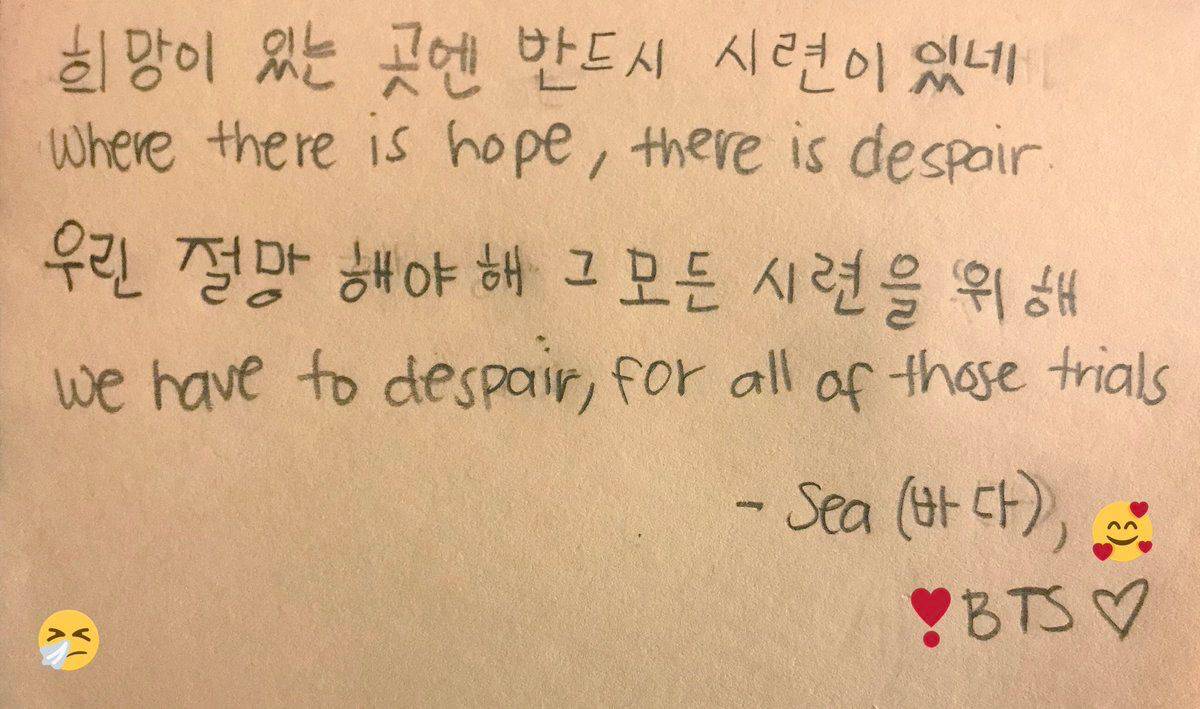 희망이 있는 곳엔 반드시 시련이 있네
where there is hope, there is despair.
우린 절망 해야 해 그 모든 시련을 위해
we have to despair, for all of those trials
- Sea (바다), 🥰
❣️BTS ♡
🤧